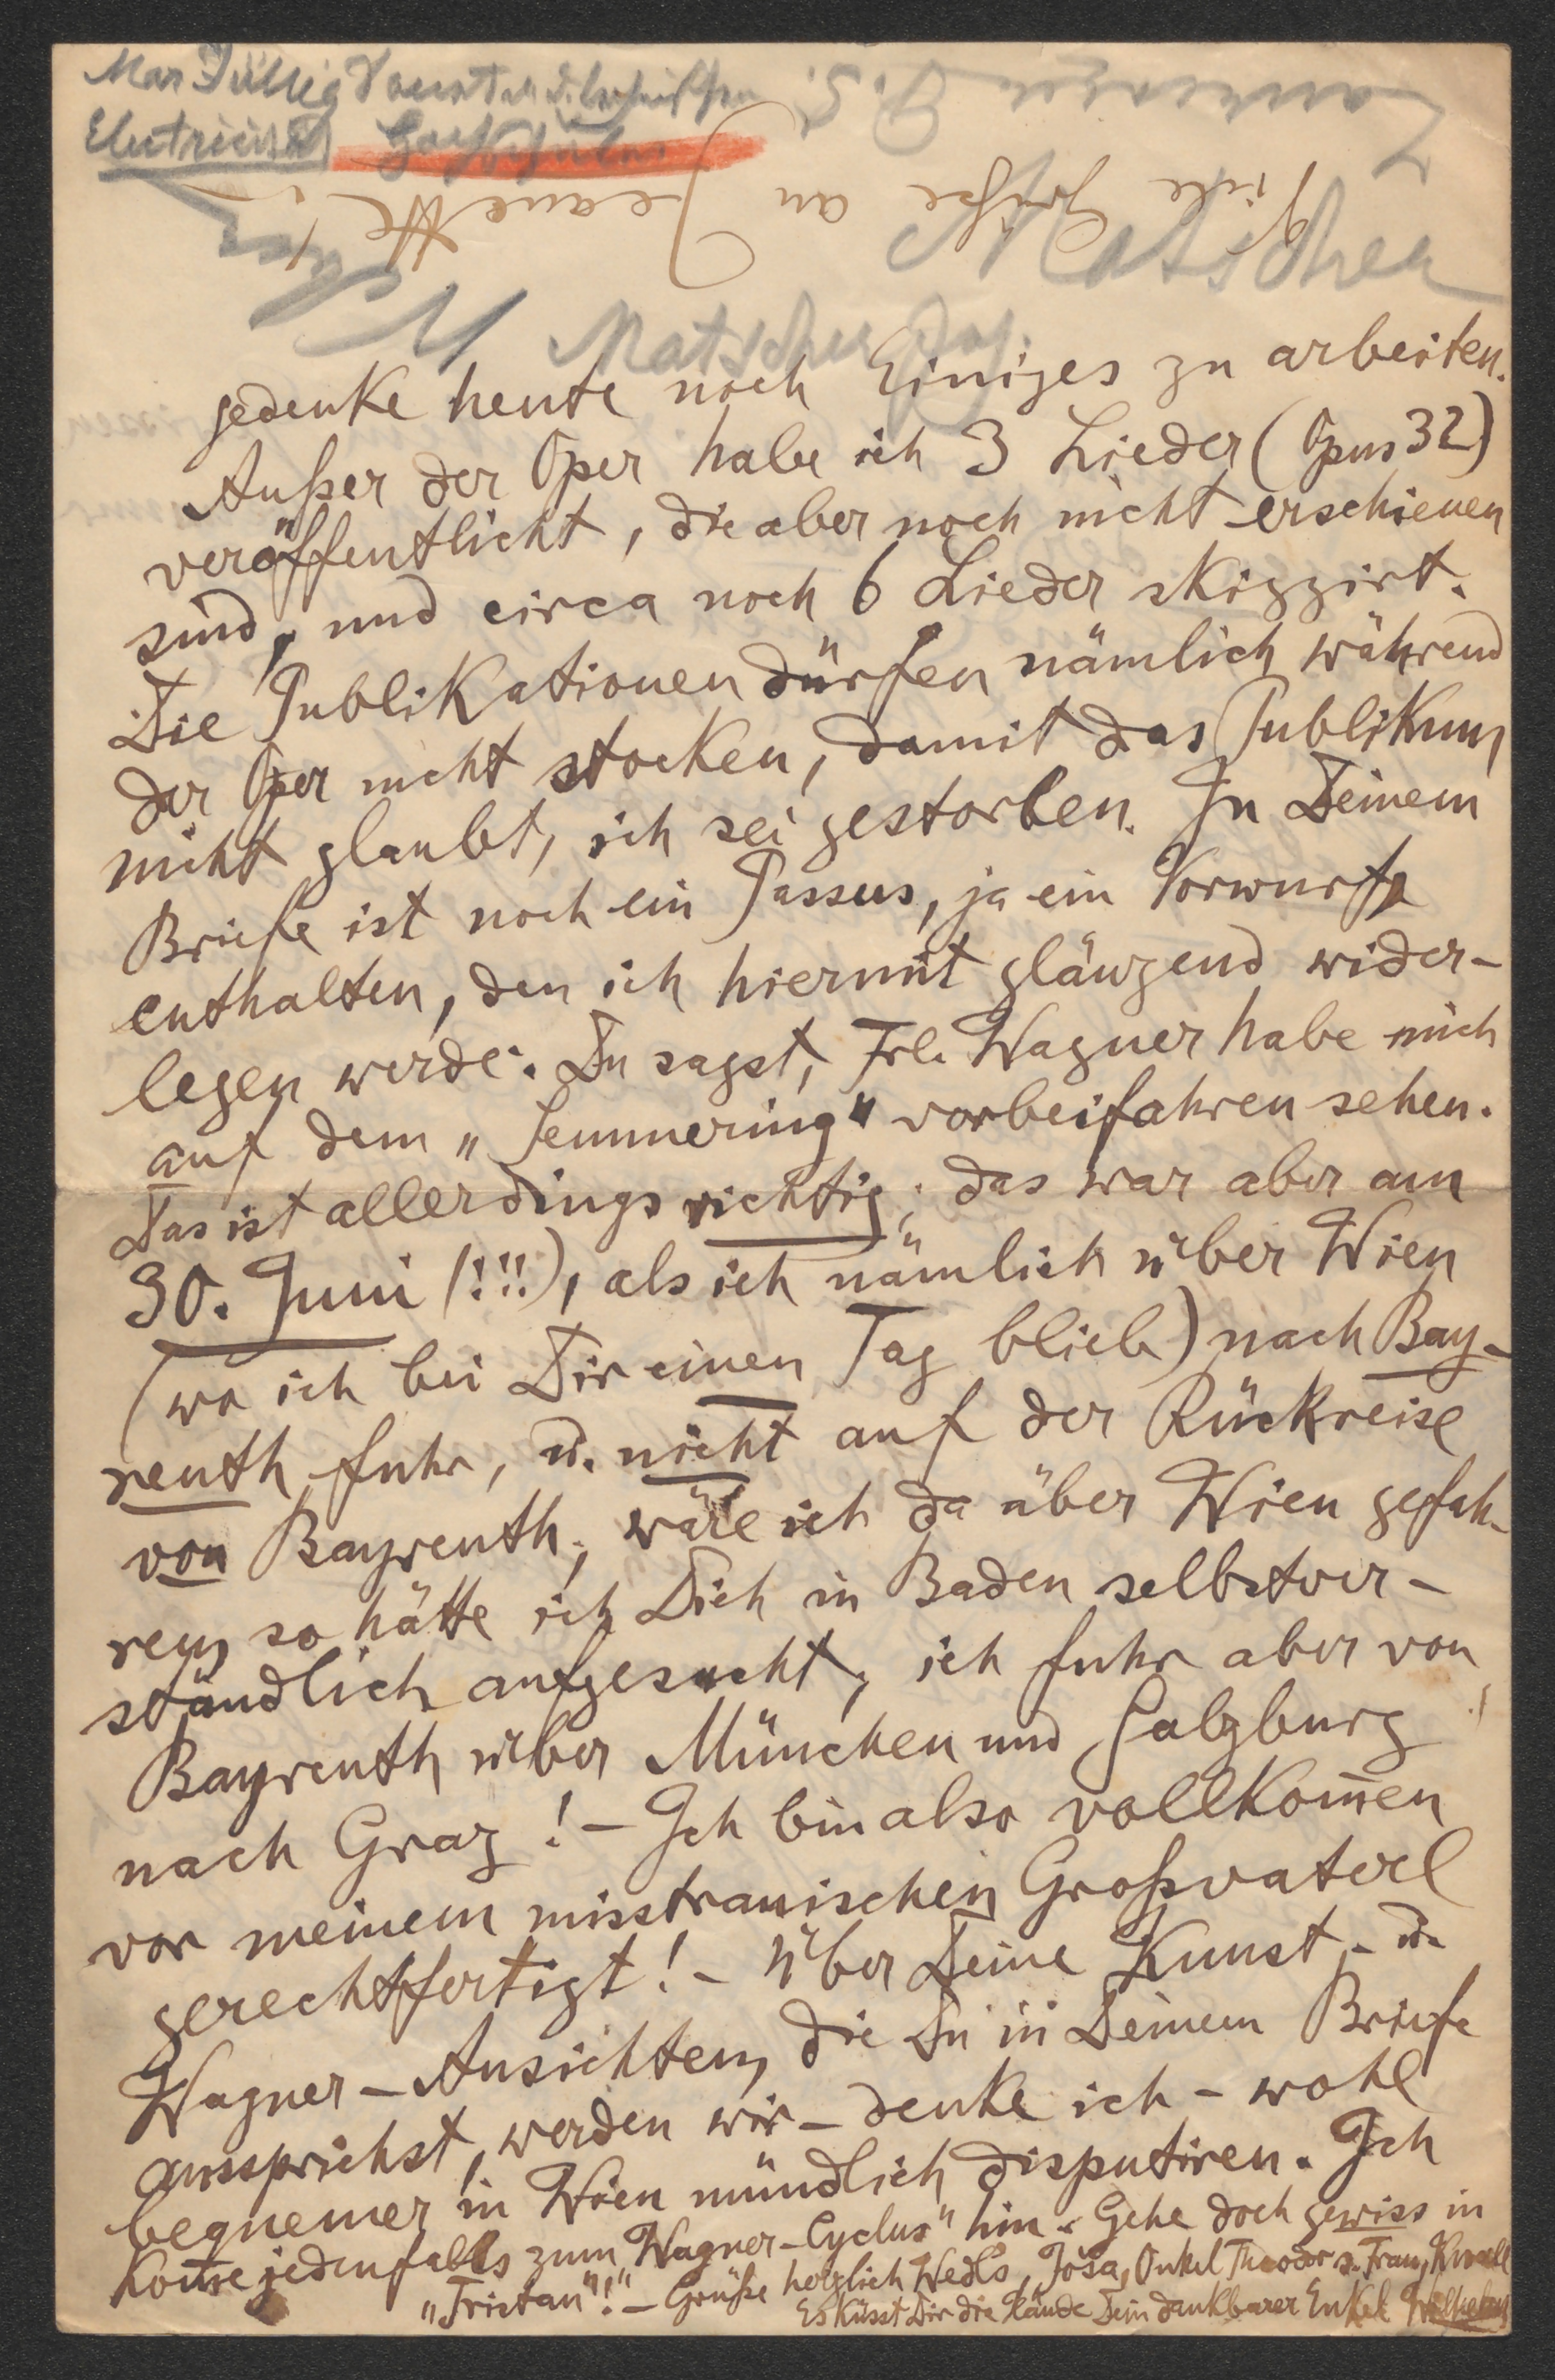 Viele Grüße an Jeanette!
Matscher
Matscher
gedenke heute noch Einiges zu arbeiten.
Außer der Oper habe ich 3 Lieder (Opus 32)
veröffentlicht, die aber noch nicht erschienen
sind, und circa noch 6 Lieder skizzirt.
Die Publikationen dürfen nämlich während
der Oper nicht stocken, damit das Publikum
nicht glaubt, ich sei gestorben. In Deinem
Briefe ist noch ein Passus, ja ein Vorwurf
enthalten, den ich hiermit glänzend wider-
legen werde. Du sagst, Frl. Wagner habe mich
auf dem „Semmering“ vorbeifahren sehen.
Das ist allerdings richtig; das war aber am
30. Juni (!!!), als ich nämlich über Wien
(wo ich bei Dir einen Tag blieb) nach Bay-
reuth fuhr, u. nicht auf der Rückreise
von Bayreuth; wäre ich da über Wien gefah-
ren, so hätte ich Dich in Baden selbstver-
ständlich aufgesucht; ich fuhr aber von
Bayreuth über München und Salzburg
nach Graz! – Ich bin also vollkom̄en
vor meinem misstrauischen Großvaterl
gerechtfertigt! – Über Deine Kunst- u.
Wagner-Ansichten, die Du in Deinem Briefe
aussprichst, werden wir – denke ich – wohl
bequemer in Wien mündlich disputiren. Ich
kom̄e jedenfalls zum „Wagner-Cyclus“ hin. Gehe doch gewiss in
„Tristan“! – Grüße herzlich Wedls, Josa, Onkel Theodor s. Frau,
Es küsst Dir die Hände Dein dankbarer Enkel Wilhelm